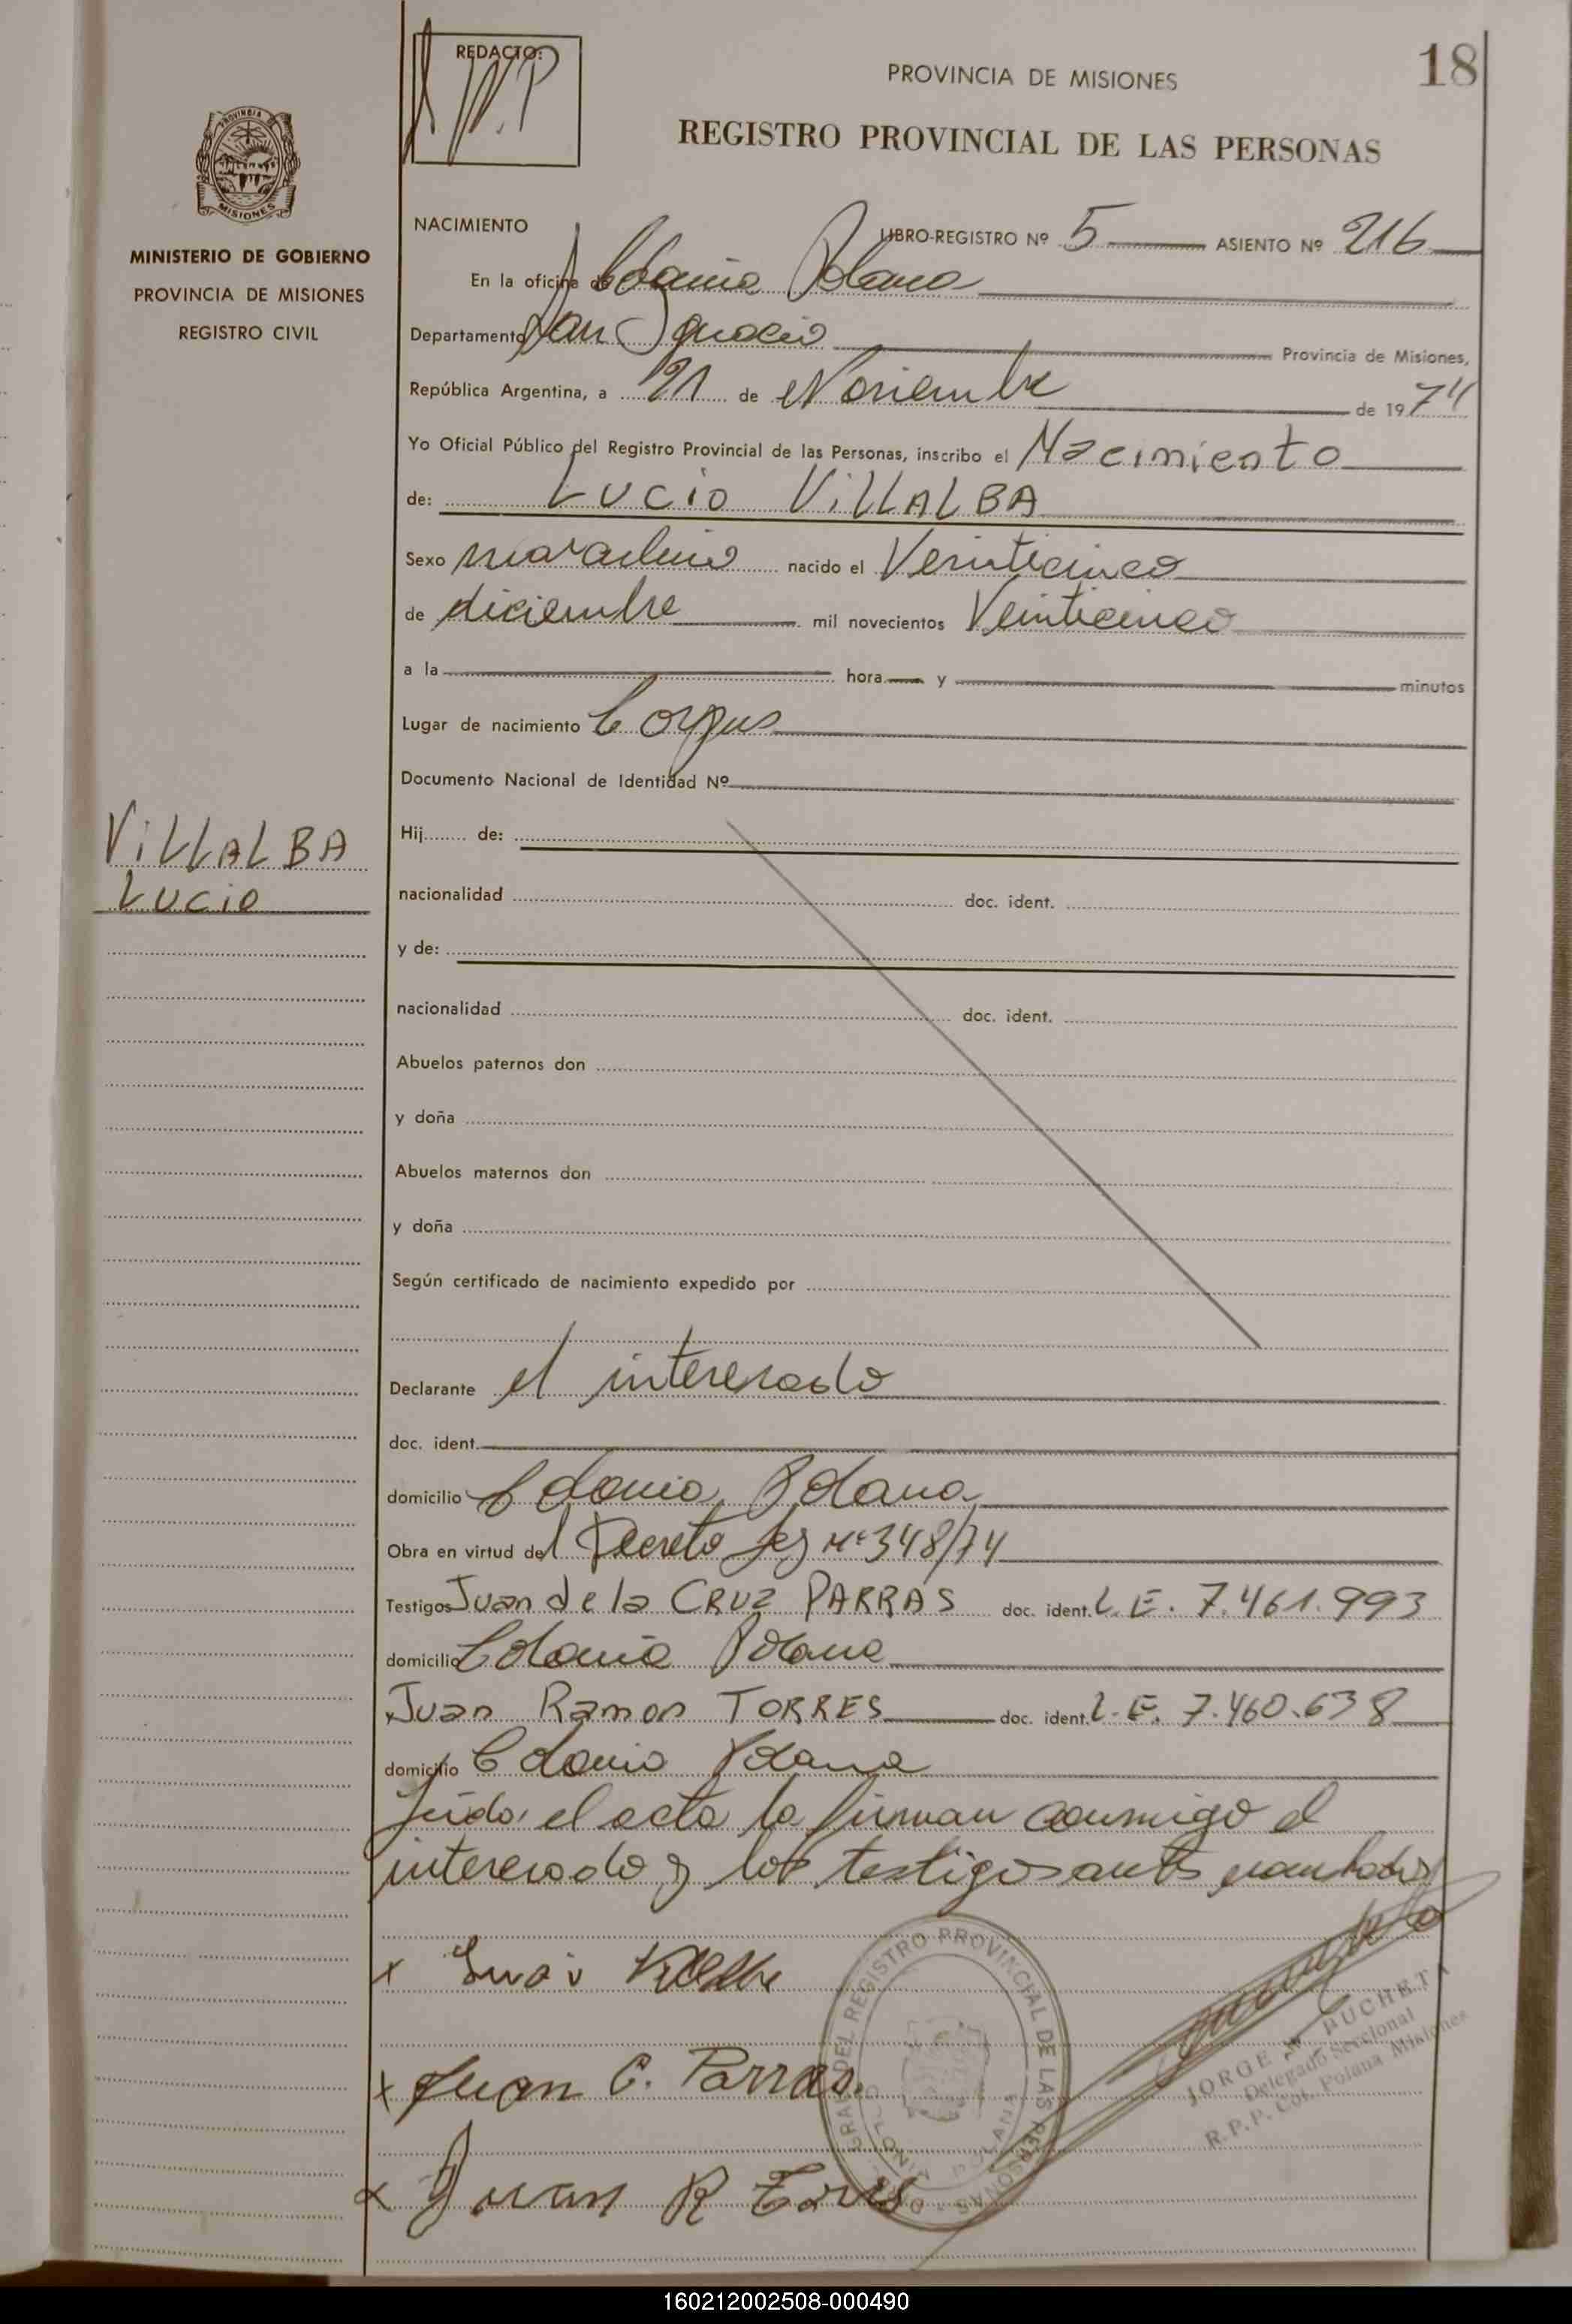 REDACTO:
W.P
PROVINCIA DE MISIONES
18
REGISTRO PROVINCIAL DE LAS PERSONAS
PROVINCIA DE
MISIONES
MINISTERIO DE GOBIERNO
PROVINCIA DE MISIONES
REGISTRO CIVIL
NACIMIENTO
LIBRO-REGISTRO Nº 5 ASIENTO Nº 216
En la oficina de Colonia Polana
Departamento San Ignacio Provincia de Misiones,
República Argentina, a 21 de Noviembre de 1974
Yo Oficial Público del Registro Provincial de las Personas, inscribo el Nacimiento
de: Lucio ViLLALBA
Sexo masculino nacido el Veinticinco
de diciembre mil novecientos Veinticinco
a la hora y minutos
Lugar de nacimiento Corpus
Documento Nacional de Identidad Nº
ViLLALBA
Lucio
Hij........ de:
nacionalidad doc. ident.
y de:
nacionalidad doc. ident.
Abuelos paternos don
y doña
Abuelos maternos don
y doña
Según certificado de nacimiento expedido por
Declarante el interesado
doc. ident.
domicilio Colonia Polana
Obra en virtud del Decreto Ley Nº 348/74
Testigos Juan de la CRUZ PARRAS doc. ident. L.E. 7.461.993
domicilio Colonia Polana
Juan Ramon TORRES doc. ident. L.E. 7.460.638
domicilio Colonia Polana
Leida el acta la firman conmigo el
interesado y los testigos antes nombrados
x
x Juan C. Parras.
x Juan R Torres
GRAL DEL REGISTRO PROVINCIAL DE LAS PERSONAS
COLONIA POLANA
JORGE W PUCHETA
Delegado Seccional
R.P.P. Col. Polana Misiones
160212002508-000490